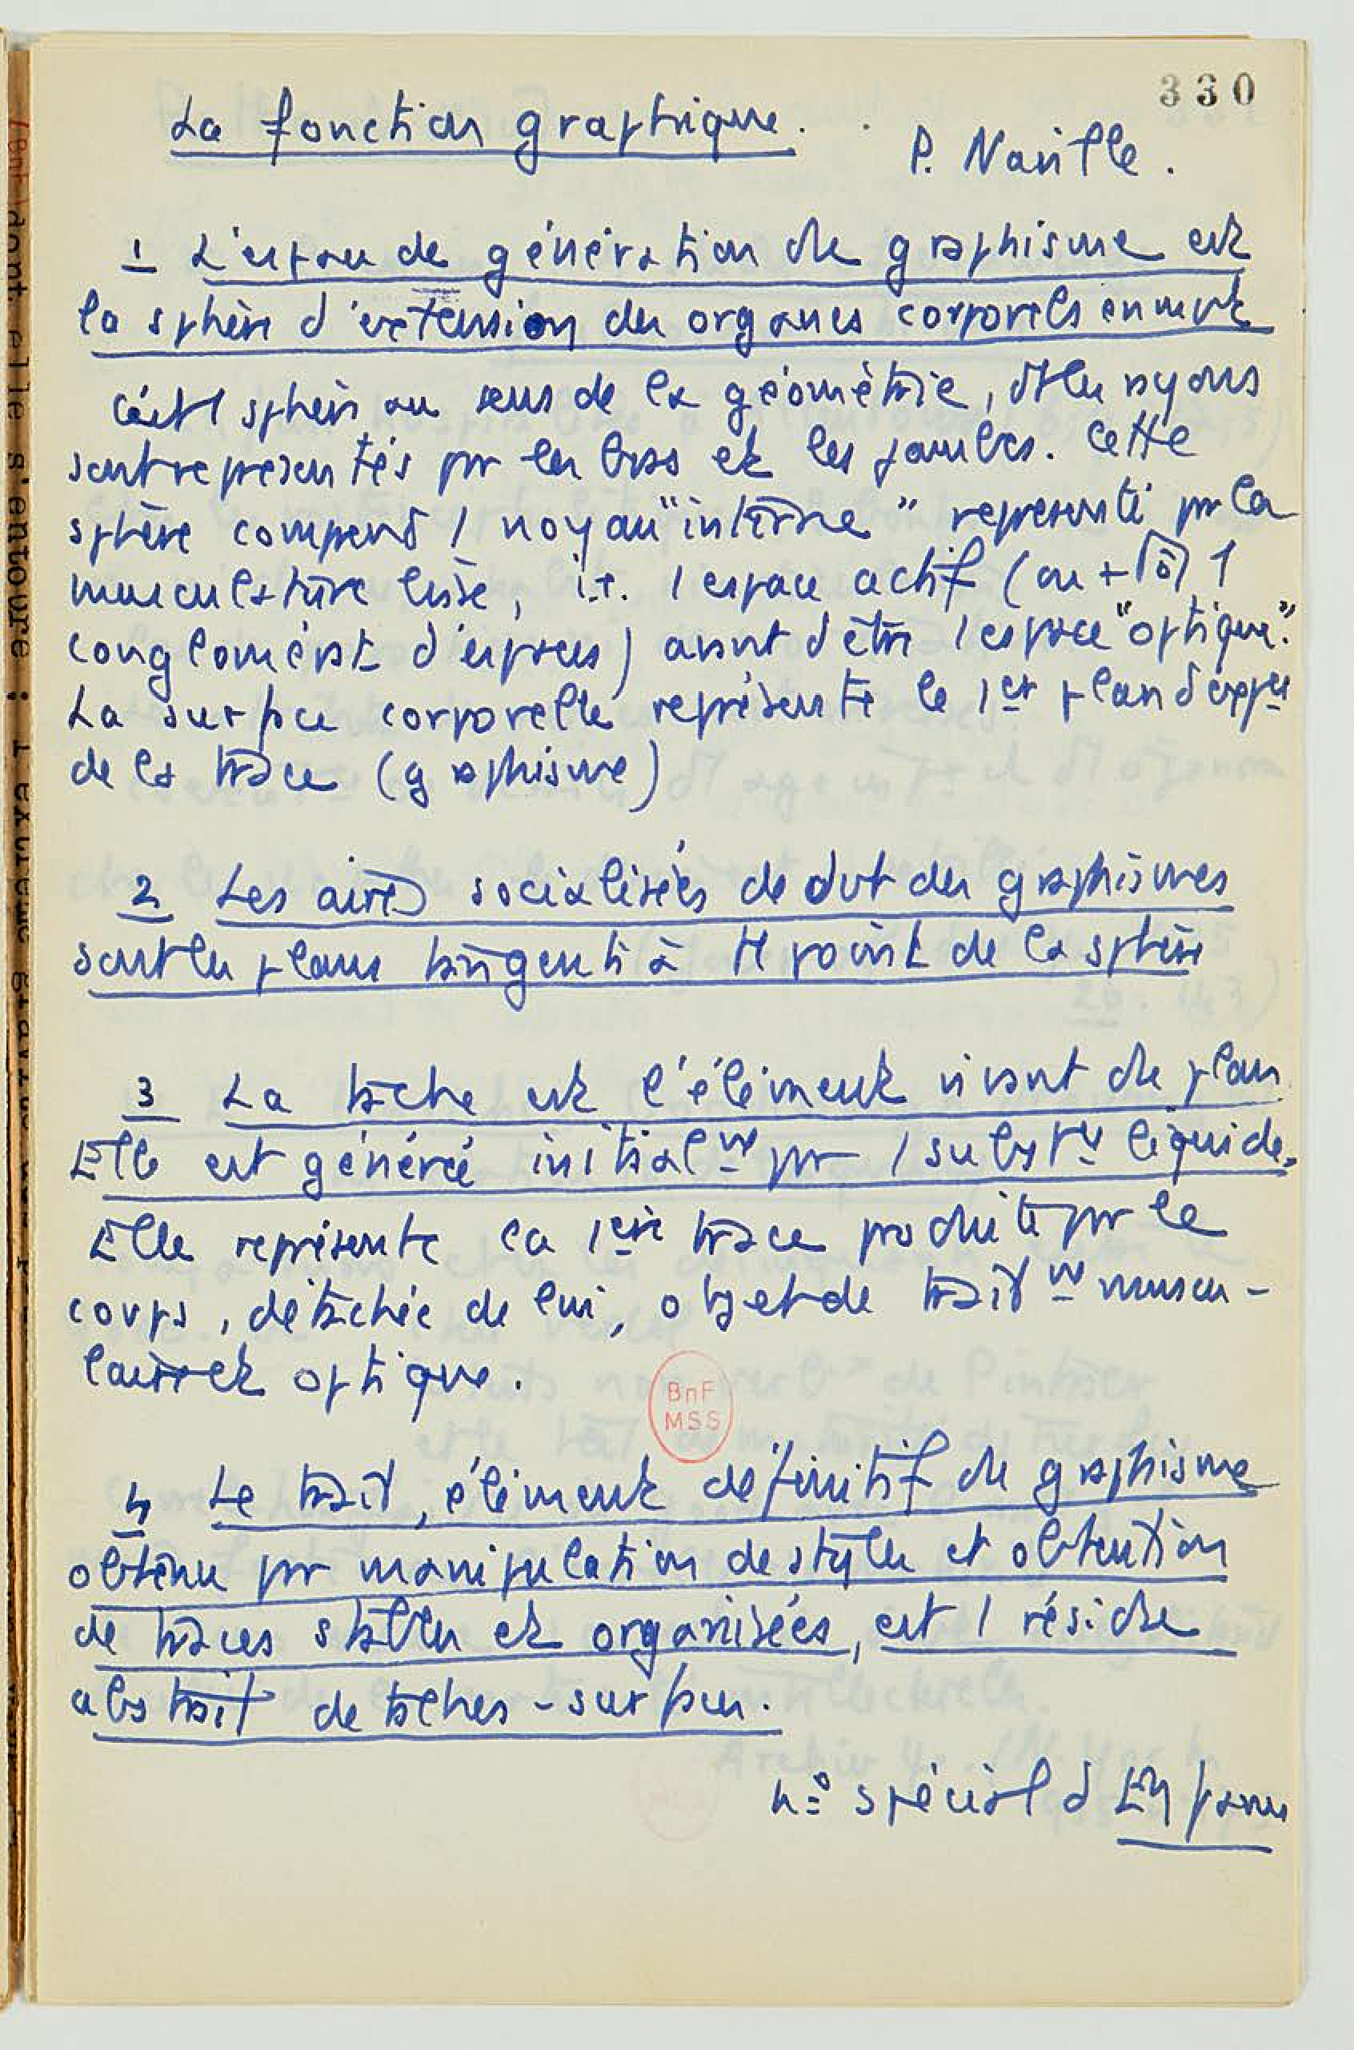 330
La fonction graphique.
P. Naville.
1 L'espace de génération du graphisme est
la sphère d'extension des organes corporels en mvt
c'est 1 sphère au sens de la géométrie, dt les rayons
sont représentés pr les bras et les jambes. Cette
sphère comprend 1 noyau "interne" représenté pr la
musculature lisse, i.e. 1 espace actif (ou +tôt 1
conglomérat d'espaces) avant d'être 1 espace "optique".
La surface corporelle représente le 1er plan d'
de la trace (graphisme)
2 Les aires socialisées de dvt des graphismes
sont les plans tangents à tt point de la sphère
3 La tache est l'élément vivant du plan
Elle est générée initialmt pr 1 subste liquide.
Elle représente la 1ère trace produite pr le
corps, détachée de lui, objet de traitmt muscu-
laire et optique.
4 Le trait, élément définitif du graphisme
obtenu pr manipulation de styles et obtention
de traces stables et organisées, est 1 résidu
abstrait de taches-surfaces.
n° spécial d Enfance
BnF
MSS
dont elle s'entoure : l'extrême